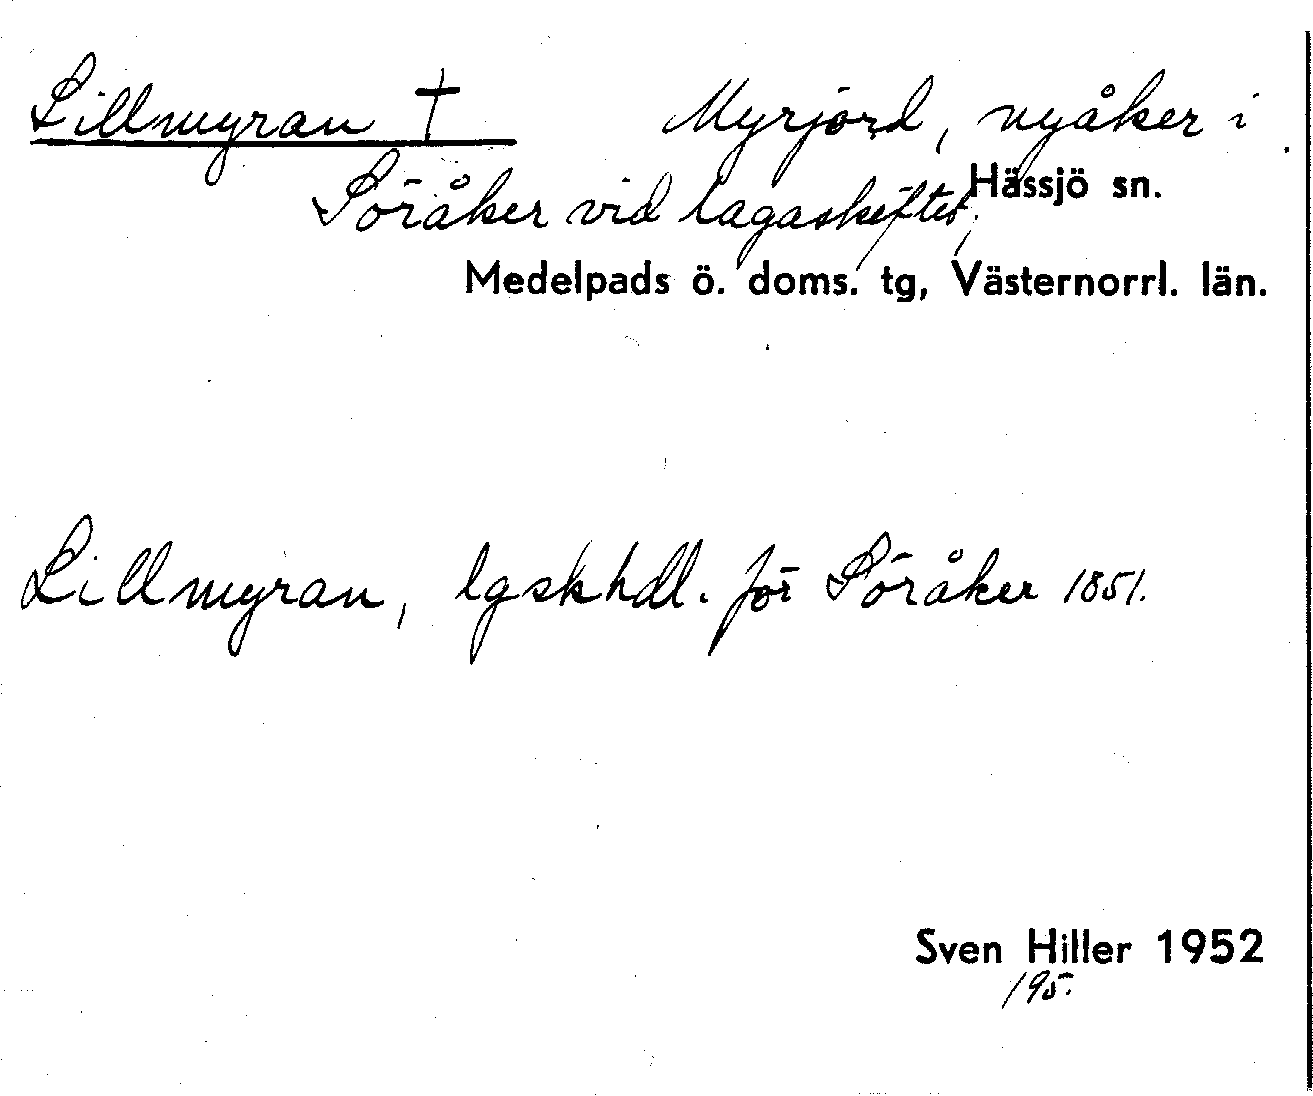 Lillmyran † Myrjord, nyåker i
Hässjö sn.
Söråker vid lagaskiftet,
Medelpads ö. doms. tg, Västernorrl. län.
Lillmyran, lgskhdl. för Söråker 1851.
Sven Hiller 1952
195.